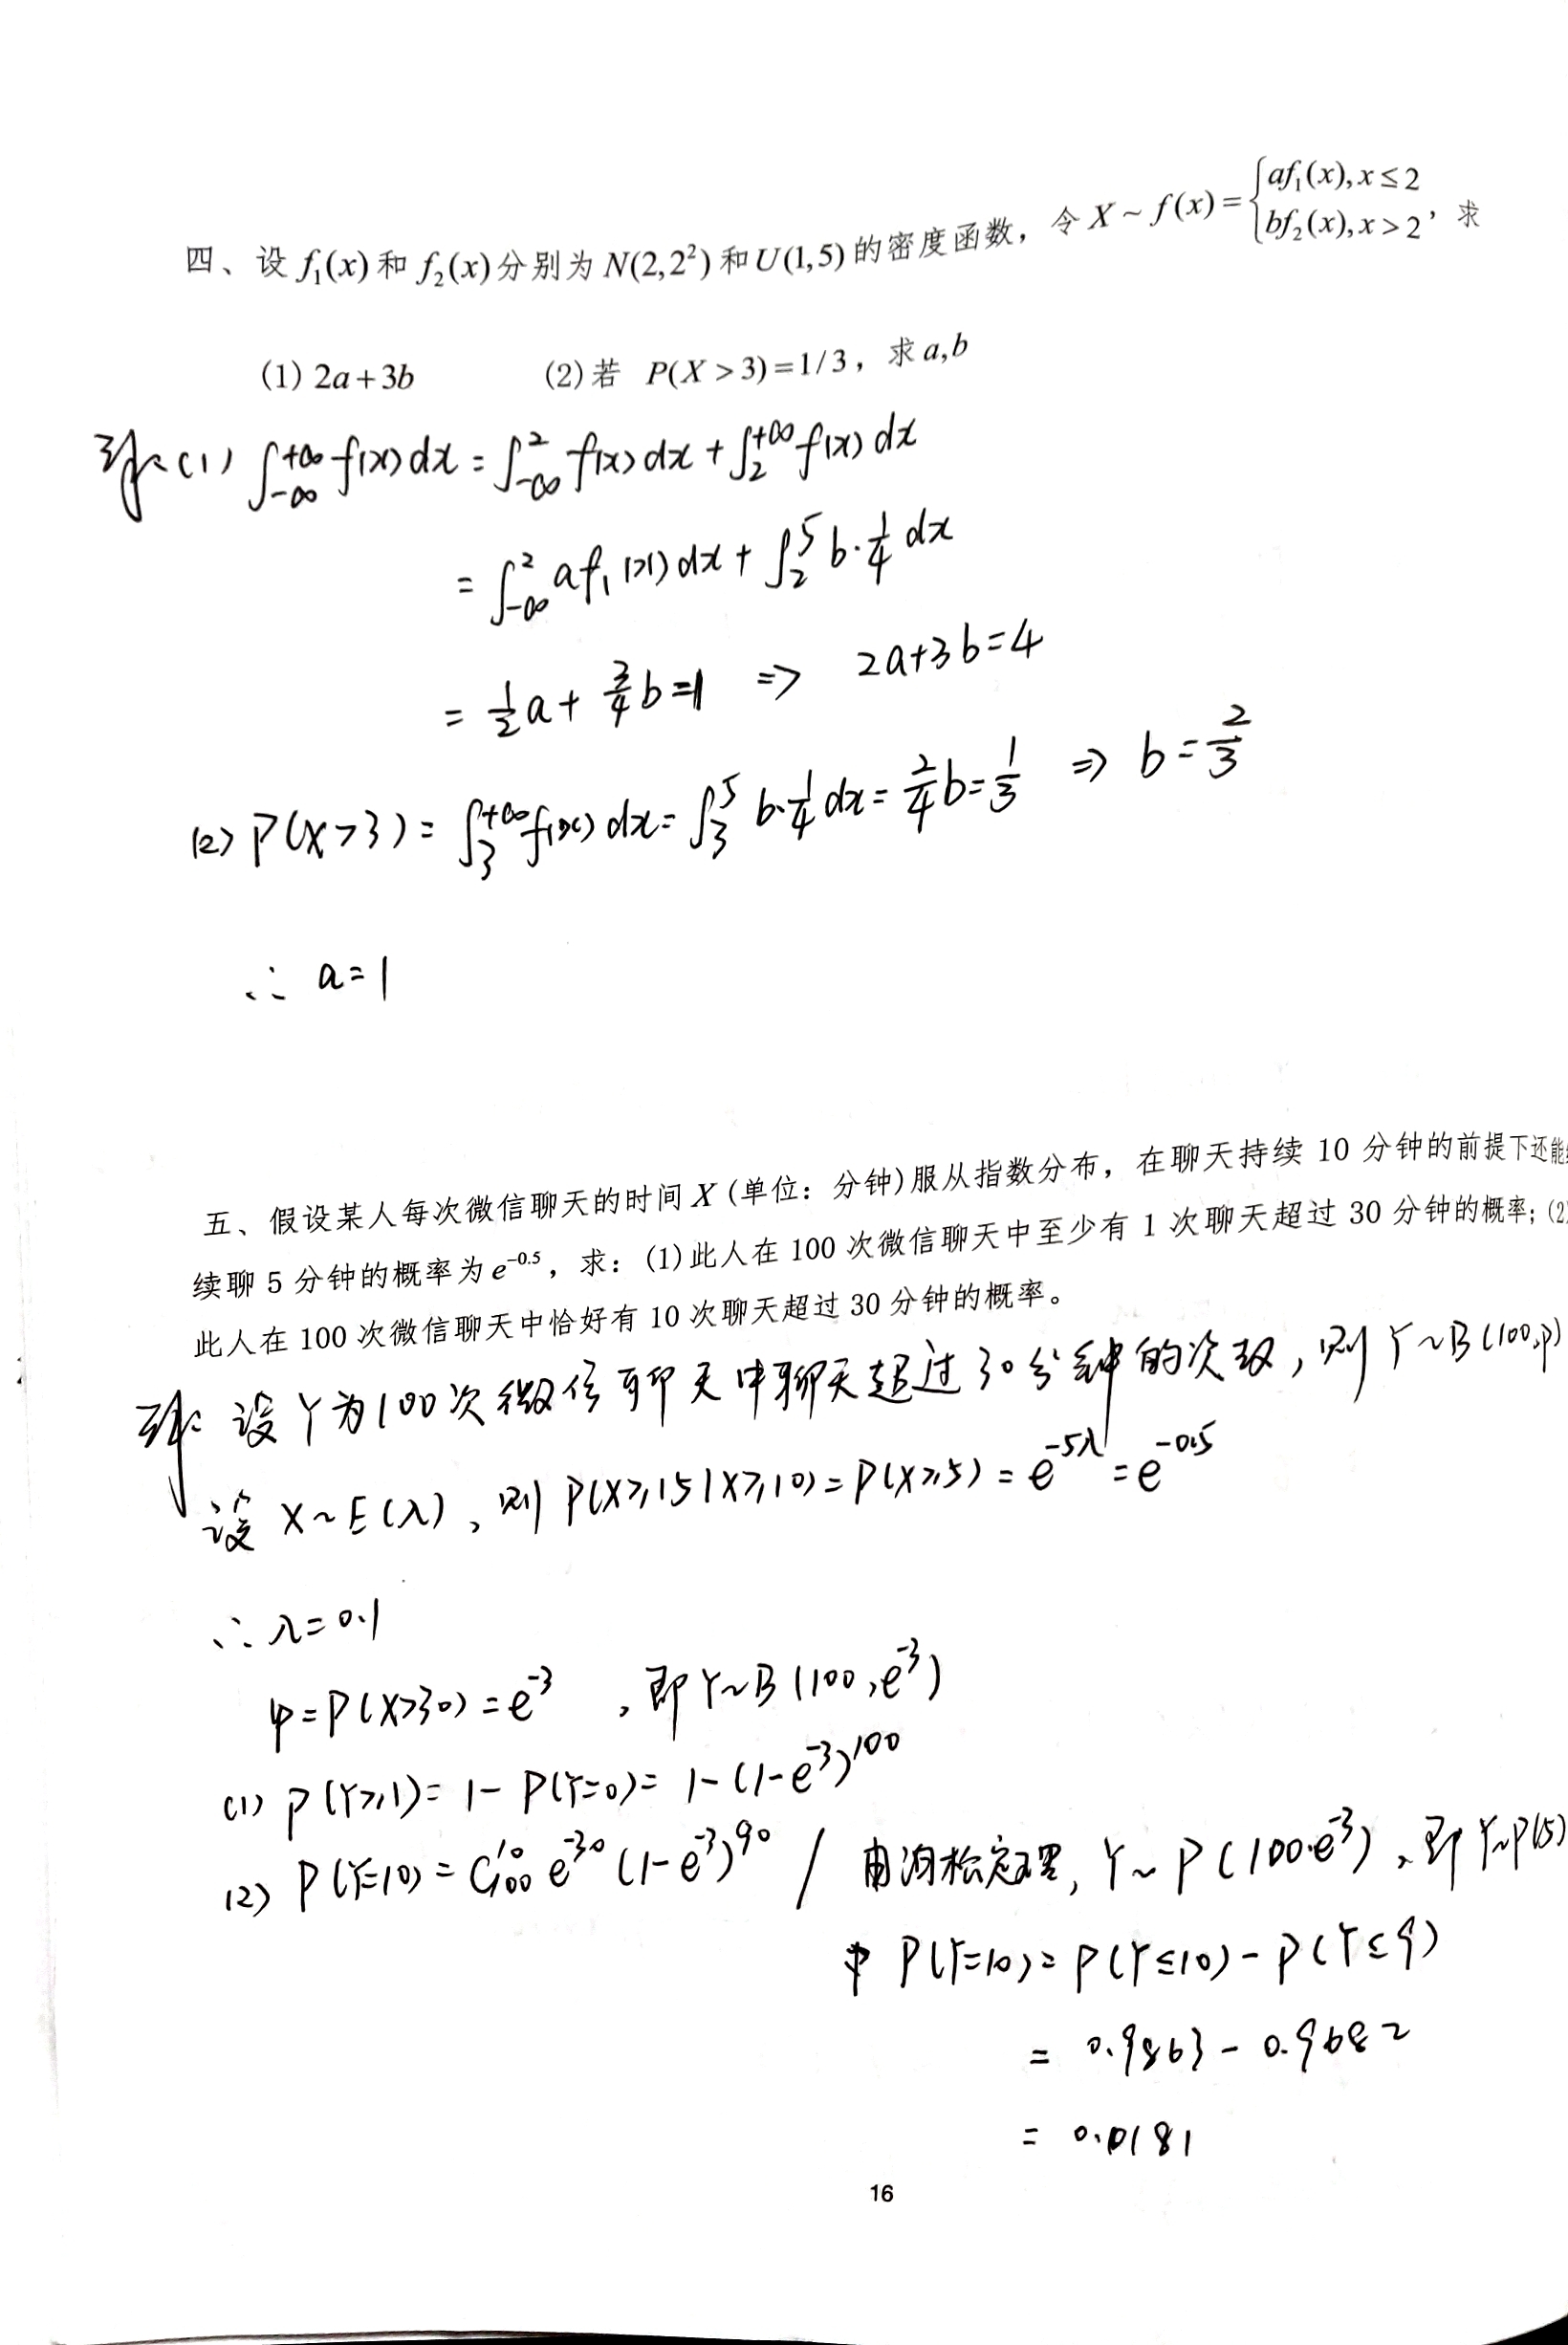 四、设 f₁(x) 和 f₂(x) 分别为 N(2,2²) 和 U(1,5) 的密度函数，令 X ~ f(x) = { af₁(x), x ≤ 2
bf₂(x), x > 2 ，求
(1) 2a+3b (2) 若 P(X > 3) = 1/3，求 a,b
解:(1) ∫_{-∞}^{+∞} f(x)dx = ∫_{-∞}^{2} f(x)dx + ∫_{2}^{+∞} f(x)dx
= ∫_{-∞}^{2} af₁(x)dx + ∫_{2}^{5} b·1/4 dx
= 1/2 a + 3/4 b = 1 ⇒ 2a+3b=4
(2) P(X>3) = ∫_{3}^{+∞} f(x)dx = ∫_{3}^{5} b·1/4 dx = 2/4 b = 1/3 ⇒ b = 2/3
∴ a=1
五、假设某人每次微信聊天的时间 X (单位：分钟)服从指数分布，在聊天持续 10 分钟的前提下还能
续聊 5 分钟的概率为 e^{-0.5}，求：(1)此人在 100 次微信聊天中至少有 1 次聊天超过 30 分钟的概率；(2
此人在 100 次微信聊天中恰好有 10 次聊天超过 30 分钟的概率。
解: 设Y为100次微信聊天中聊天超过30分钟的次数，则 Y~B(100,p)
设 X~E(λ)，则 P(X≥15|X≥10) = P(X≥5) = e^{-5λ} = e^{-0.5}
∴ λ=0.1
p = P(X>30) = e^{-3} ，即 Y~B(100, e^{-3})
(1) P(Y≥1) = 1 - P(Y=0) = 1-(1-e^{-3})^{100}
(2) P(Y=10) = C_{100}^{10} e^{-30} (1-e^{-3})^{90} / 由泊松定理, Y~P(100·e^{-3})，即 Y~P(5)
P(Y=10) = P(Y≤10) - P(Y≤9)
= 0.9863 - 0.9682
= 0.0181
16